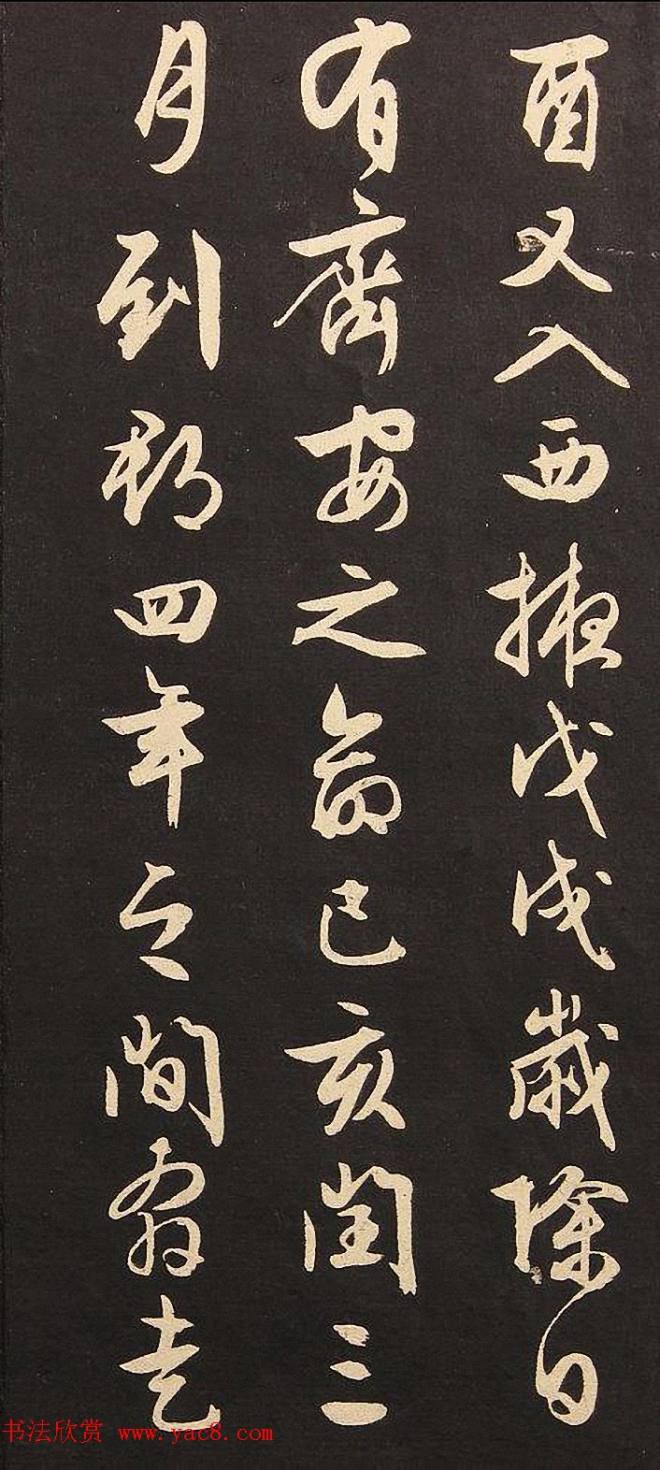 酉又入西掖戊戌歲除日
有齊安之命己亥閏三
月到郡四年之間奔走
书法欣赏 www.yac8.com